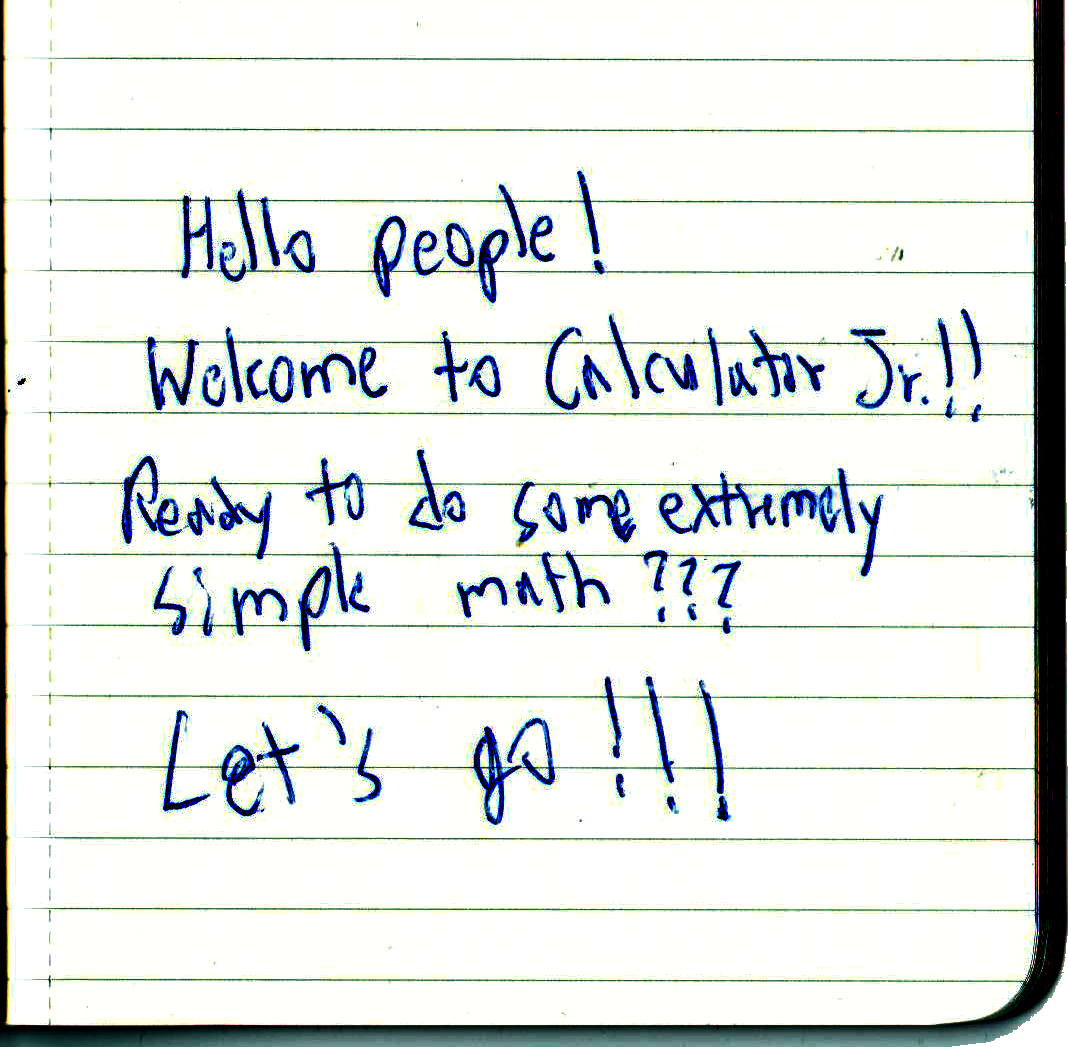 Hello people!
Welcome to Calculator Jr.!!
Ready to do some extremely
simple math???
Let's go!!!